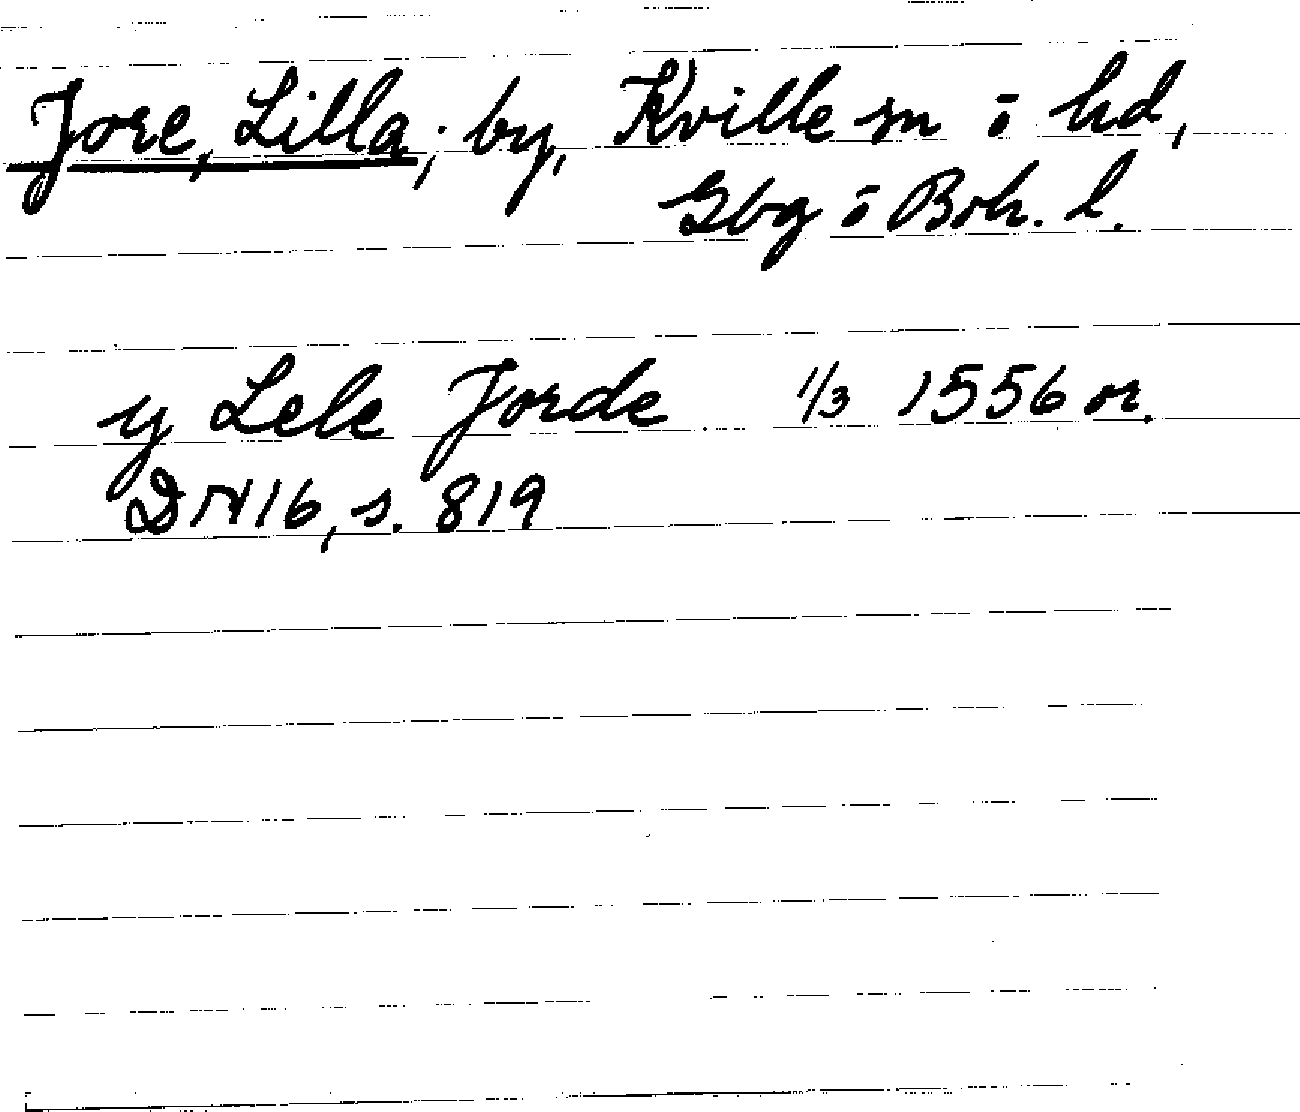 Jore, Lilla; by, Kville sn o hd,
Gbg o Boh. l.
y Lele Jorde 1/3 1556 or.
DN 16, s. 819